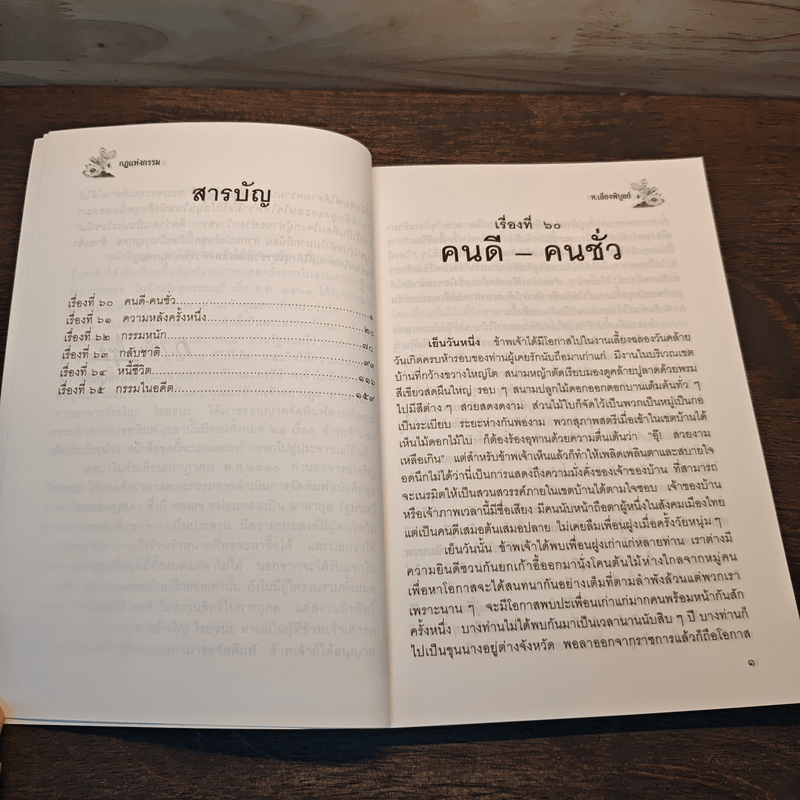 กฎแห่งกรรม
สารบัญ
เรื่องที่ ๖๐ คนดี-คนชั่ว....................๑
เรื่องที่ ๖๑ ความหลังครั้งหนึ่ง....................๒๐
เรื่องที่ ๖๒ กรรมหนัก....................๗๐
เรื่องที่ ๖๓ กลับชาติ....................๙๑
เรื่องที่ ๖๔ หนี้ชีวิต....................๑๑๖
เรื่องที่ ๖๕ กรรมในอดีต....................๑๕๙
ท.เลียงพิบูลย์
เรื่องที่ ๖๐
คนดี – คนชั่ว
เย็นวันหนึ่ง ข้าพเจ้าได้มีโอกาสไปในงานเลี้ยงฉลองวันคล้าย
วันเกิดครบห้ารอบของท่านผู้เคยรักนับถือมาเก่าแก่ มีงานในบริเวณเขต
บ้านที่กว้างขวางใหญ่โต สนามหญ้าตัดเรียบมองดูคล้ายปูลาดด้วยพรม
สีเขียวสดผืนใหญ่ รอบ ๆ สนามปลูกไม้ดอกออกดอกบานเต็มต้นทั่ว ๆ
ไปมีสีต่าง ๆ สวยสดงดงาม ส่วนไม้ใบก็จัดไว้เป็นพวกเป็นหมู่เป็นกอ
เป็นระเบียบ ระยะห่างกันพองาม พวกสุภาพสตรีเมื่อเข้าในเขตบ้านได้
เห็นไม้ดอกไม้ใบ ก็ต้องร้องอุทานด้วยความตื่นเต้นว่า "อุ๊! สวยงาม
เหลือเกิน" แต่สำหรับข้าพเจ้าเห็นแล้วก็ทำให้เพลิดเพลินตาและสบายใจ
อดนึกไม่ได้ว่านี่เป็นการแสดงถึงความมั่งคั่งของเจ้าของบ้าน ที่สามารถ
จะเนรมิตให้เป็นสวนสวรรค์ภายในเขตบ้านได้ตามใจชอบ เจ้าของบ้าน
หรือเจ้าภาพเวลานี้มีชื่อเสียง มีคนนับหน้าถือตาผู้หนึ่งในสังคมเมืองไทย
แต่เป็นคนดีเสมอต้นเสมอปลาย ไม่เคยลืมเพื่อนฝูงเมื่อครั้งวัยหนุ่ม ๆ
เย็นวันนั้น ข้าพเจ้าได้พบเพื่อนฝูงเก่าแก่หลายท่าน เราต่างมี
ความยินดีชวนกันยกเก้าอี้ออกมานั่งโคนต้นไม้ห่างไกลจากหมู่คน
เพื่อหาโอกาสจะได้สนทนากันอย่างเดิมที่ตามลำพังล้วนแต่พวกเรา
เพราะนาน ๆ จะมีโอกาสพบปะเพื่อนเก่าแก่มากคนพร้อมหน้ากันสัก
ครั้งหนึ่ง บางท่านไม่ได้พบกันมาเป็นเวลานานนับสิบ ๆ ปี บางท่านก็
ไปเป็นขุนนางอยู่ต่างจังหวัด พอลาออกจากราชการแล้วก็ถือโอกาส
๑